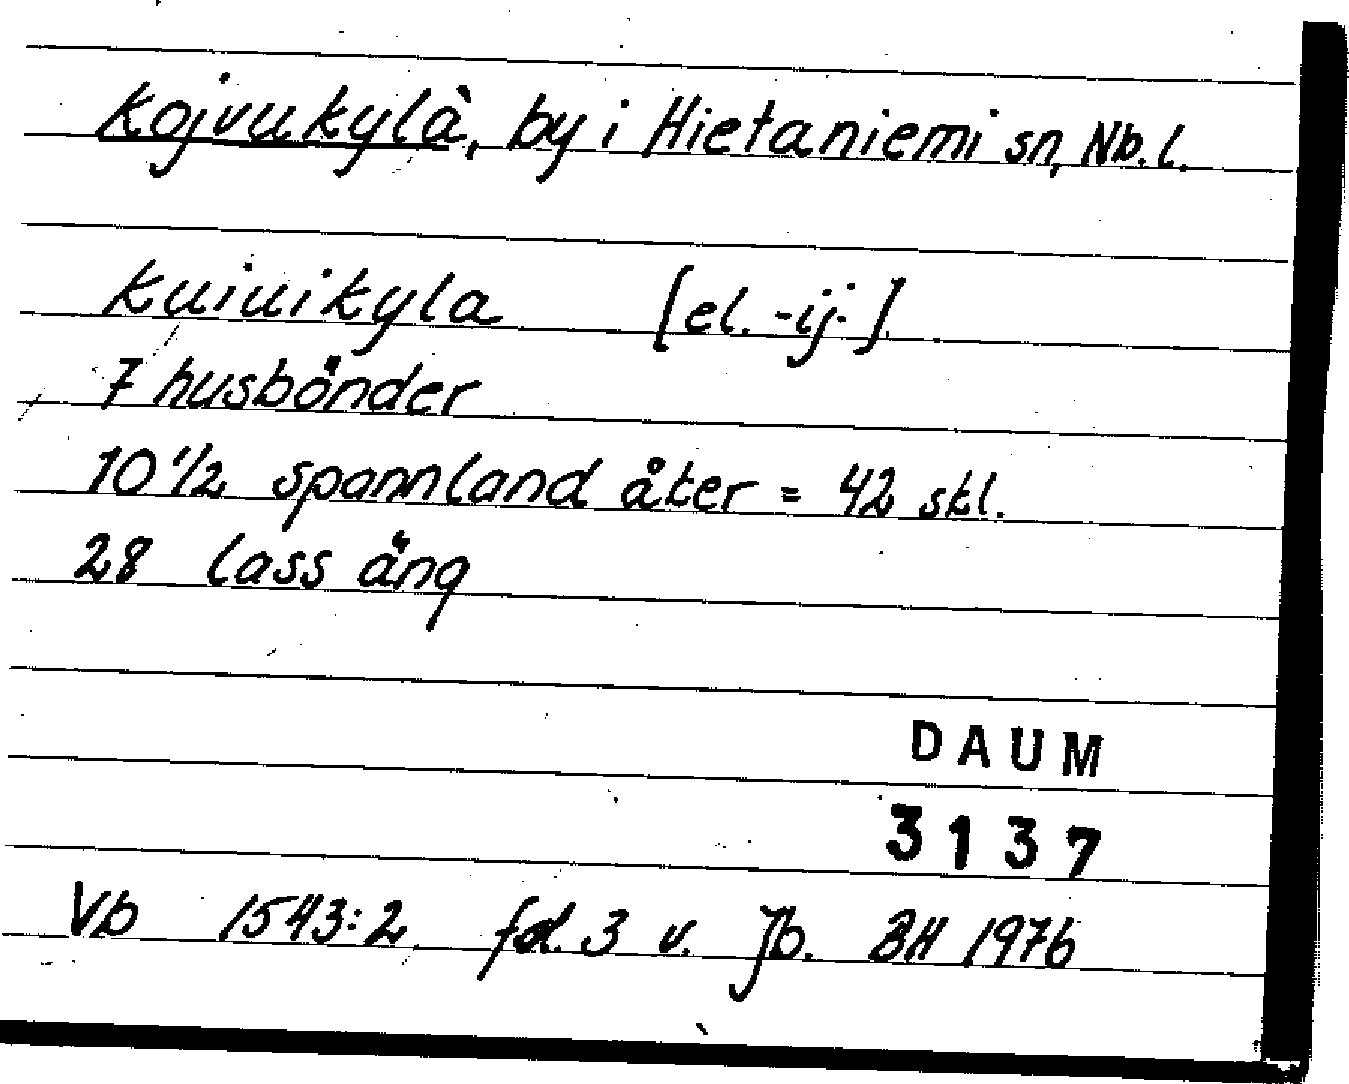 Kojvukylä, by i Hietaniemi sn, Nb. l.
Kuiuikyla [el. -ij-]
7 husbönder
10 1/2 spannland åker = 42 skl.
28 lass äng
DAUM
3137
Vb 1543:2 fol. 3 v. Jb. BH 1976